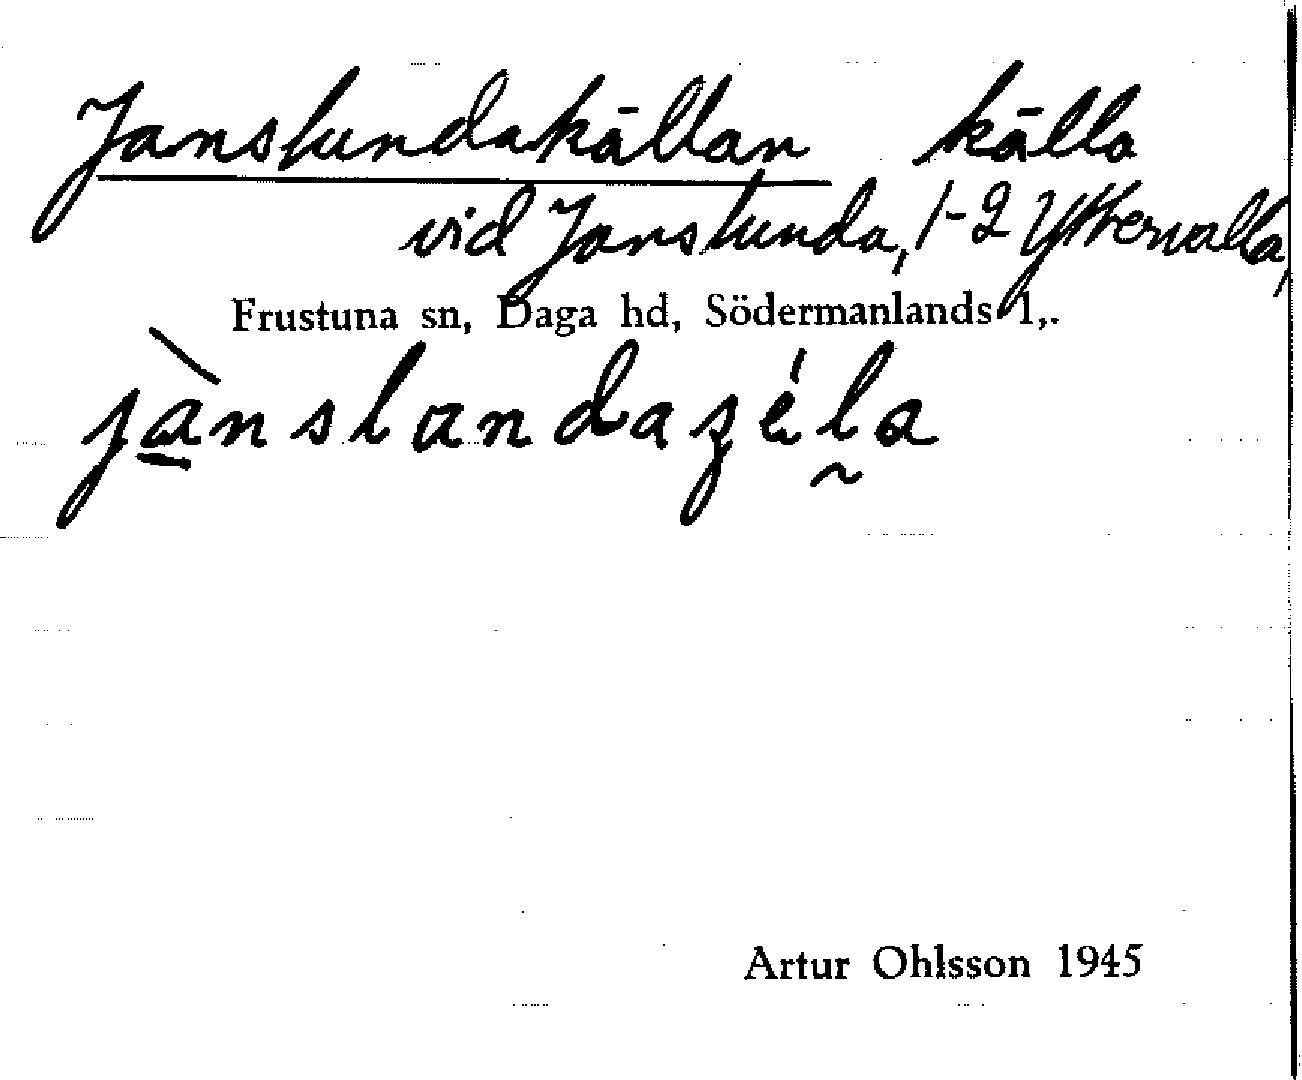 Janslundakällan källa
vid Janslunda, 1-2 Yttervalla,
Frustuna sn, Daga hd, Södermanlands l,.
jànslandaʒéla
Artur Ohlsson 1945